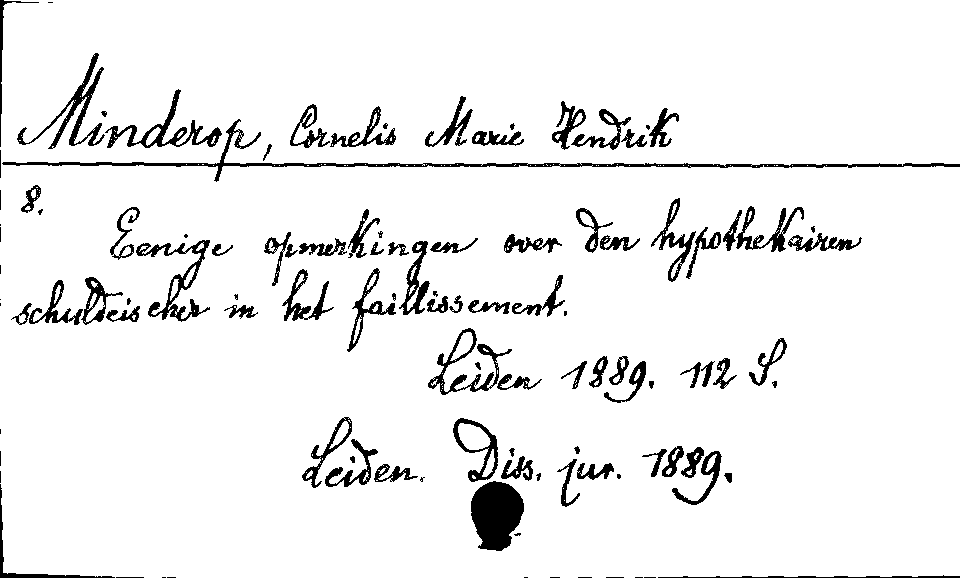 Minderop, Cornelis Marie Hendrik
8.
Eenige opmerkingen over den hypothekairen
schuldeischer in het faillissement.
Leiden 1889. 112 S.
Leiden. Diss. jur. 1889.